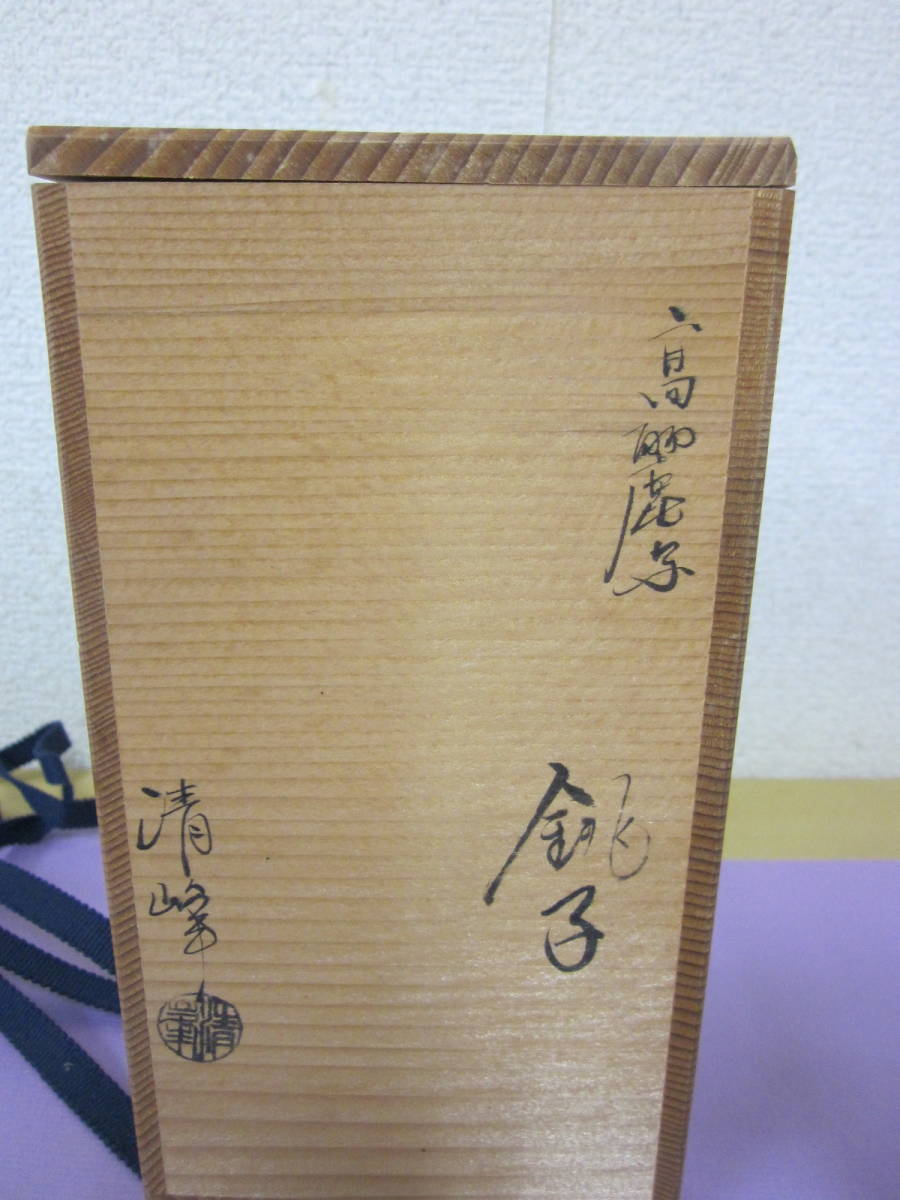 高麗写
銚子
清峰
清峯